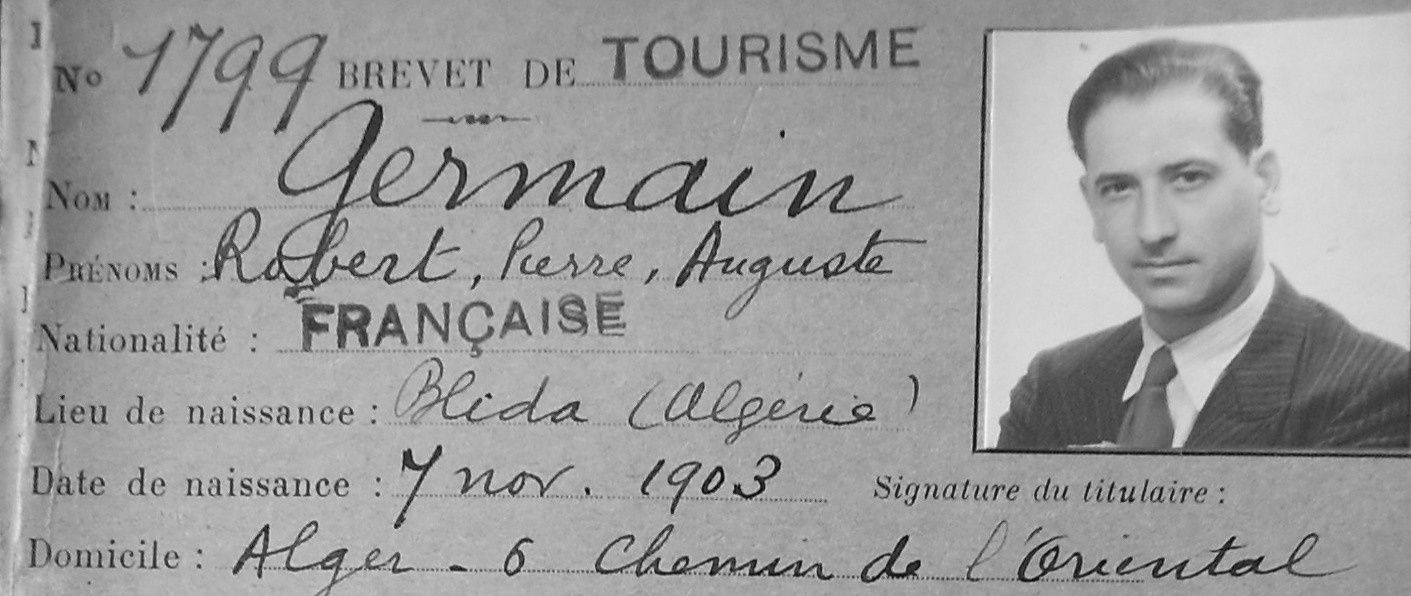 No 1799 BREVET DE TOURISME
NOM : Germain
PRÉNOMS : Robert, Pierre, Auguste
Nationalité : FRANÇAISE
Lieu de naissance : Blida (Algérie)
Date de naissance : 7 nov. 1903
Signature du titulaire :
Domicile : Alger - 6 Chemin de l'Oriental